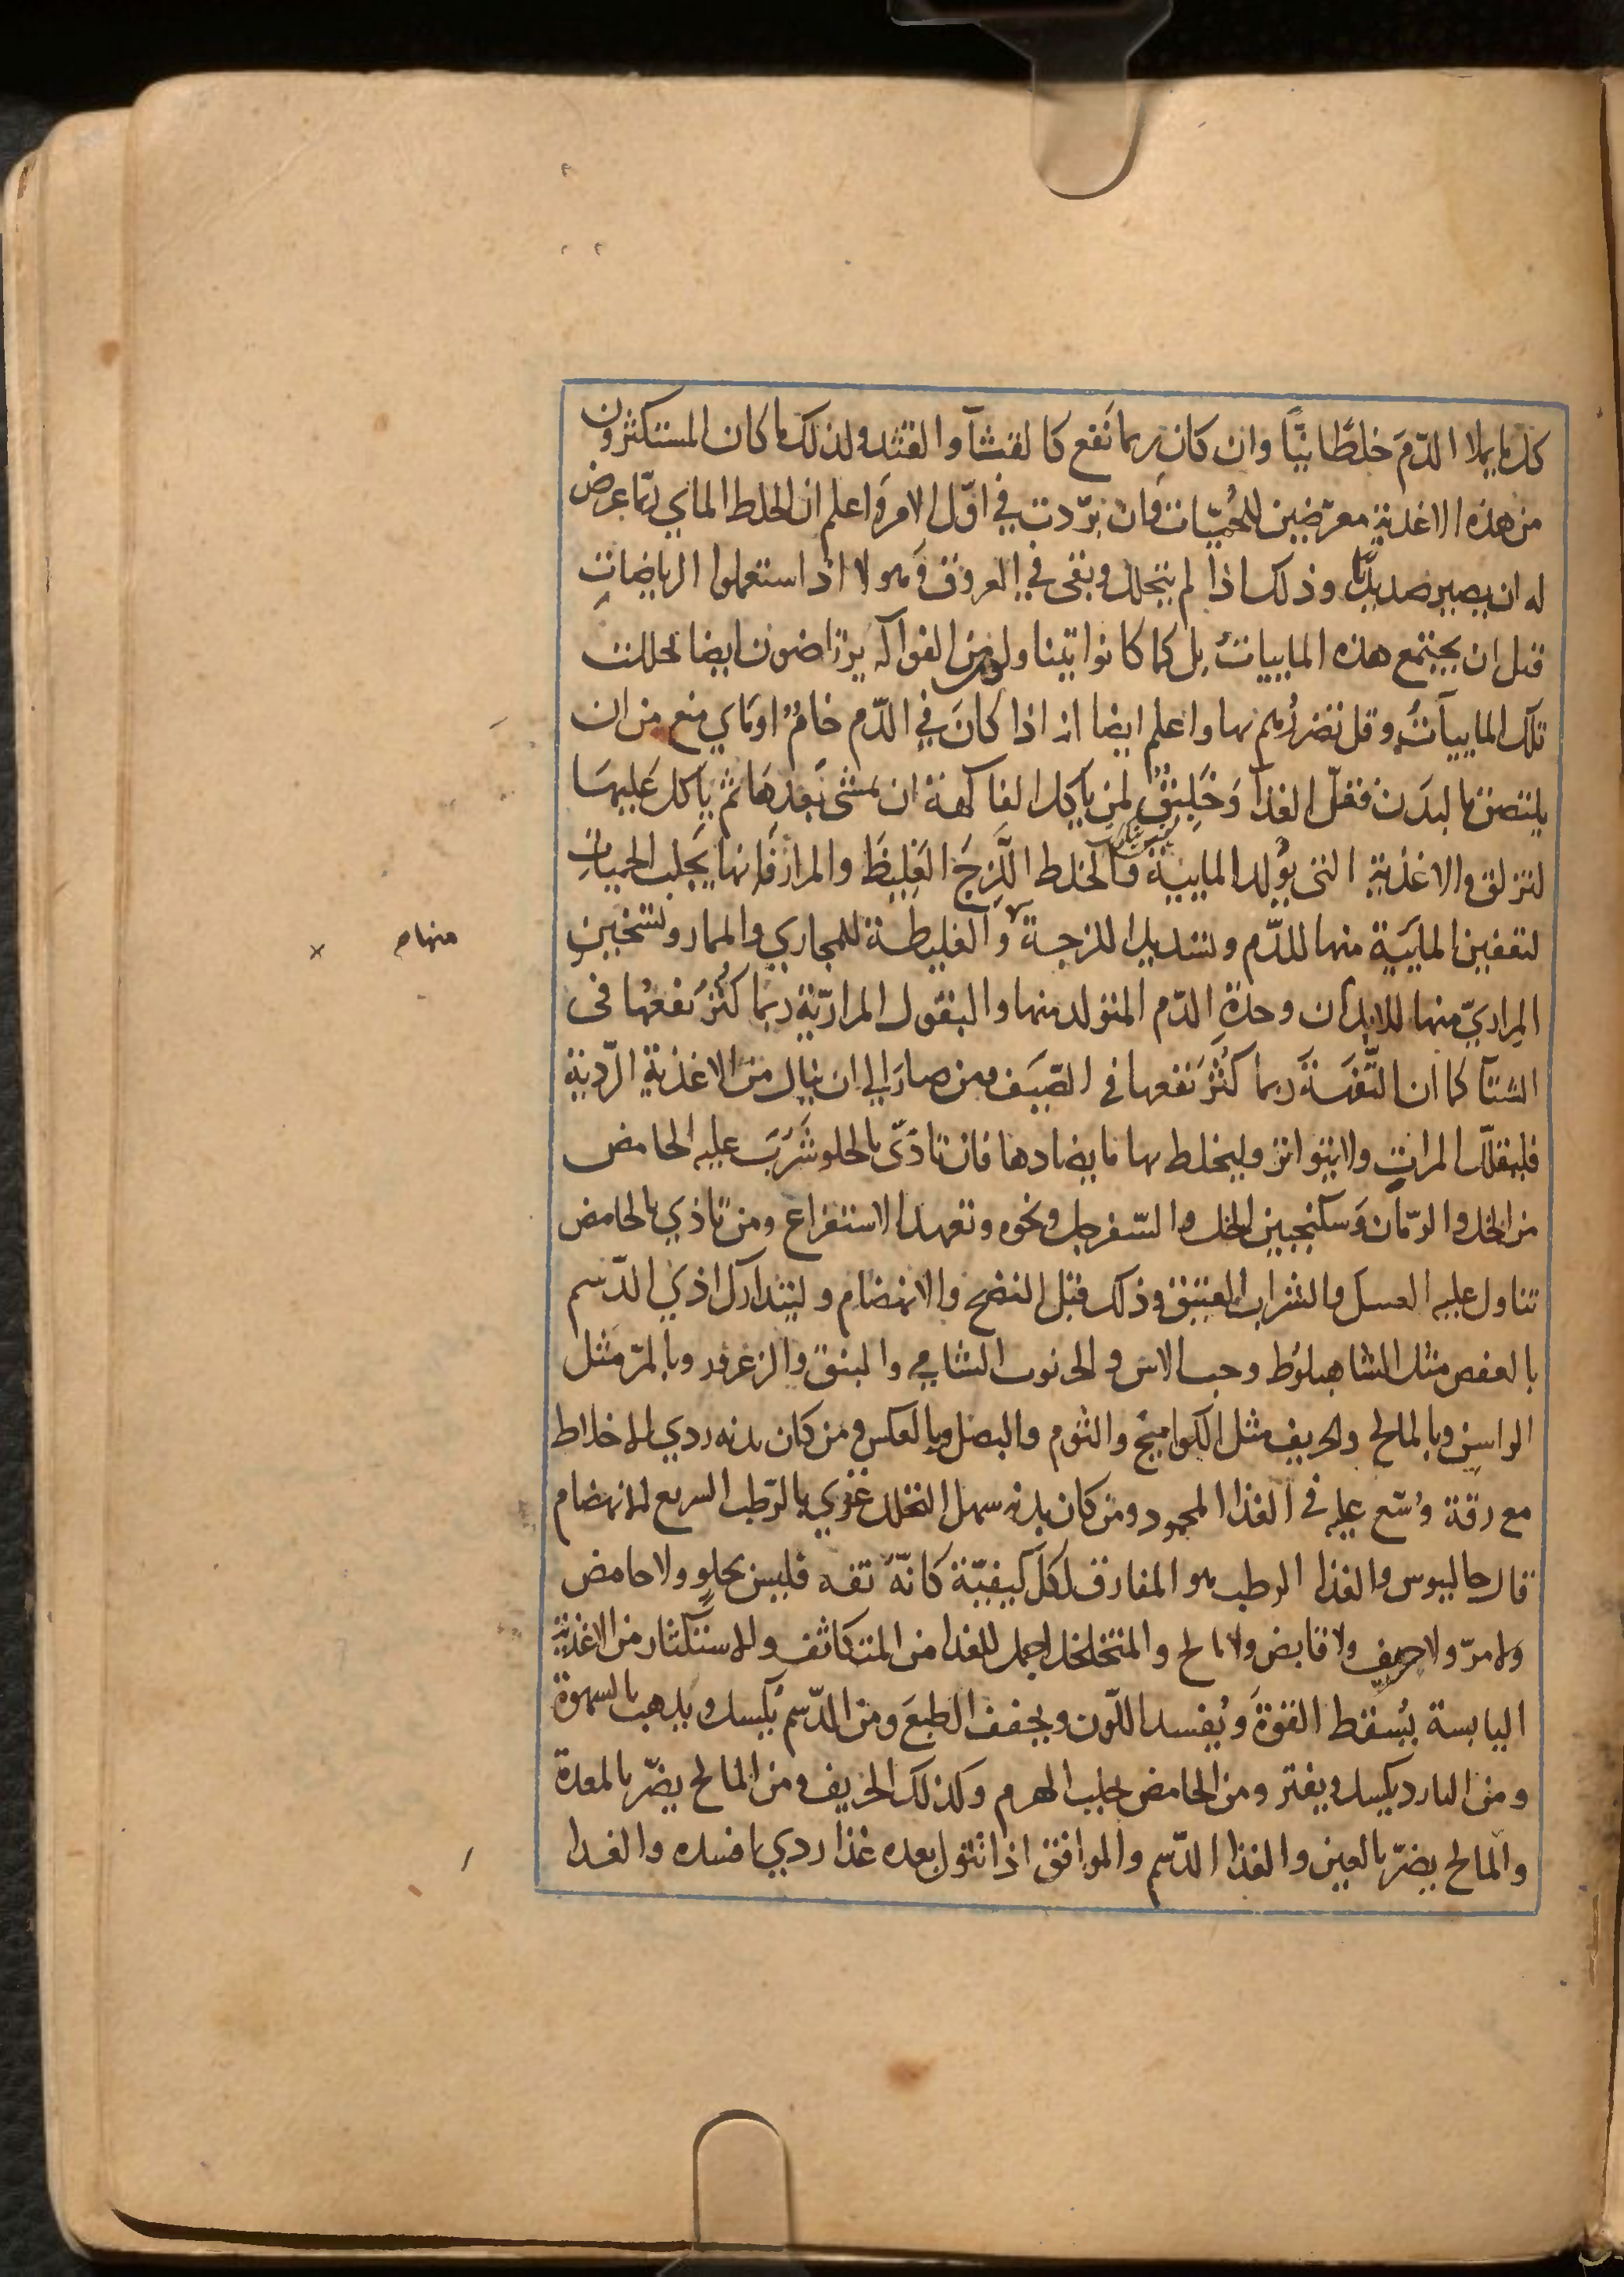 كل ما يملا الدّمَ خلطًا نيًّا وان كان ربما نَفع كالقثآ والقثد ولذلك ما كان المستكثرون
من هذه الاغذية معرّضين للحُميّات وان برّدت في اوّل الامر واعلم ان الخلط الماي ربّما عرض
له ان يصير صديديًّا وذلك اذا لم يتحلل وبقى في العروق وهولا اذا استعملوا الرياضاتِ
قبل ان يجتمع هذه الماييات بل كما كانوا يتناولون من الفواكه يرتاضون ايضا لحللت
تلك الماييآتُ وقل تضررُهم بها واعلم ايضا انه اذا كانَ في الدّم خامٌ او ماي منع من ان
يلتصق بالبدَن فقلّ الغذآ وَخَلِيقٌ لمن ياكل الفاكهة ان يمشى بَعدهَا ثم ياكل عَليهَا
لتزلق والاغذية التى يُولد المايية والخلط اللَّزِجَ الغَلِيظَ والمرارَ فانها يَجلب الحميات
لتعفين المايَية منها للدّم ولتسديد اللزجة والغليظة للمجاري والممار ولتسخين
منهام
المِراريّ منها للابدان وحدةِ الدّم المتولد منها والبقول المراريّة ربّما كثُر نفعُها فى
الشتآ كما ان التّفهَة ربما كثُرَ نَفعها في الصّيَف ومن صار الي ان ينال من الاغذية الرّدية
فليقلّل المراتِ ولا يتواتر وليخلط بها ما يضادها فان تاذّى بالحلو شَرَبَ عليه الحامض
من الخل والرمّان وَسكنجبين الخل والسّفرجل ونحوه وتعهد الاستفراغ ومن تاذي بالحامض
تناول عليه العسل والشراب العتيق وذلك قبل النضج والانهضام وليتدارك اذي الدّسم
بالعفص مثل الشاهبلوط وحب الاس والخرنوب الشامي والنبق والزعرور وبالمرّ مثل
الراسن وبالمالح والحريف مثل الكواميخ والثوم والبصل وبالعكس ومن كان بدنه ردي الاخلاط
مع رقة وُسّع عليه في الغذا المحمود ومن كان بدنه سهل التخلل غذي بالرّطب السريع الانهضام
قال جالينوس والغذا الرطب هو المفارق لكل كيفيّة كانّه تفه فليس بحلوٍ ولا حامض
ولا مرّ ولا حريف ولا قابض ولا مالح والمتخلخل احمل للغذا من المتكاثف والاستكثار من الاغذية
اليابسة يُسقط القوةَ ويُفسد اللّون ويجفف الطبعَ ومن الدّسم يُكسل ويذهب بالشهوة
ومن البارد يكسل ويفتر ومن الحامض يجلب الهرم وكذلك الحريف ومن المالح يضرّ بالمعدة
والمالح يضرّ بالعين والغذا الدّسم والموافق اذا تنوول بعده غذا ردي افسده والغذا